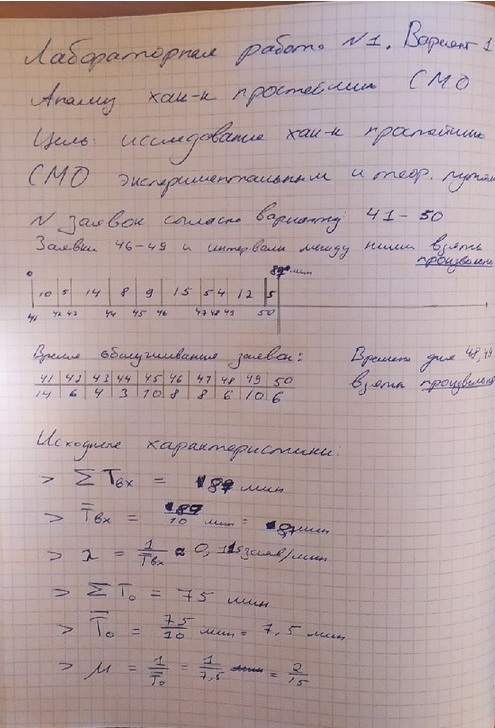 Лабораторная работа №1. Вариант 1
Анализ хак-к простейших СМО
Цель: исследование хак-к простейших
СМО экспериментальным и теор. путём
N заявок согласно варианту: 41-50
Заявки 46-49 и интервалы между ними взять
произвольно
0 87 мин
10 5 14 8 9 15 5 4 12 5
41 42 43 44 45 46 47 48 49 50
Время обслуживания заявок: Времена для 48, 49
41 42 43 44 45 46 47 48 49 50 взять произвольно
14 6 4 3 10 8 8 6 10 6
Исходные характеристики:
> ΣTвх = 87 мин
> T̅вх = 87/10 мин = 8,7 мин
> λ = 1/T̅вх ≈ 0,115 заяв/мин
> ΣTо = 75 мин
> T̅о = 75/10 мин = 7,5 мин
> μ = 1/T̅о = 1/7,5 = 2/15